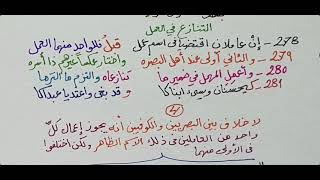 التنازع في العمل
278 - إنْ عاملان اقتضيا في اسم عمل قبلُ فللواحد منهما العمل
279 - والثاني أولى عند أهل البصره واختار عكساً غيرهم ذا أسره
280 - وأعمل المهمل في ضمير ما تنازعاه والتزم ما التزما
281 - كيحسنان ويسيء ابناكا وقد بغى واعتديا عبداكا
لا خلاف بين البصريين والكوفيين أنه يجوز إعمال كلّ
واحد من العاملين في ذلك الاسم الظاهر ولكن اختلفوا
في الأولى منهما